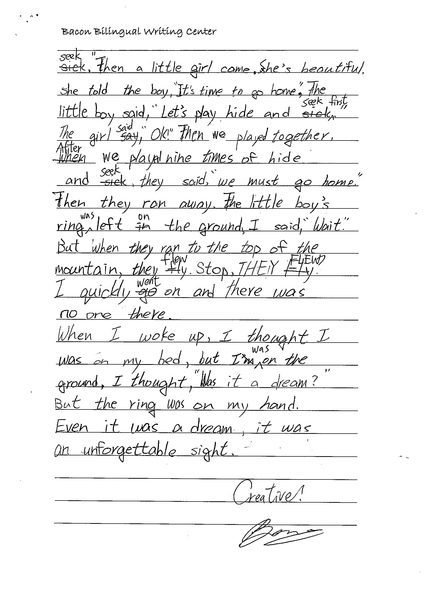 Bacon Bilingual Writing Center
seek
sick." Then a little girl come, She's beautiful.
She told the boy, "It's time to go home", The
little boy said, "Let's play hide and sick," seek first,
The girl say, said "OK!" Then we played together.
After
When we played nine times of hide
and sick, seek they said, "we must go home."
Then they ran away. The little boy's
ring was left in on the ground, I said, "Wait."
But when they ran to the top of the
mountain, they fly. flew Stop, THEY Fly. FLEW
I quickly go went on and there was
no one there.
When I woke up, I thought I
was on my bed, but I'm was on the
ground, I thought, "Was it a dream?"
But the ring was on my hand.
Even it was a dream, it was
an unforgettable sight.
Creative!